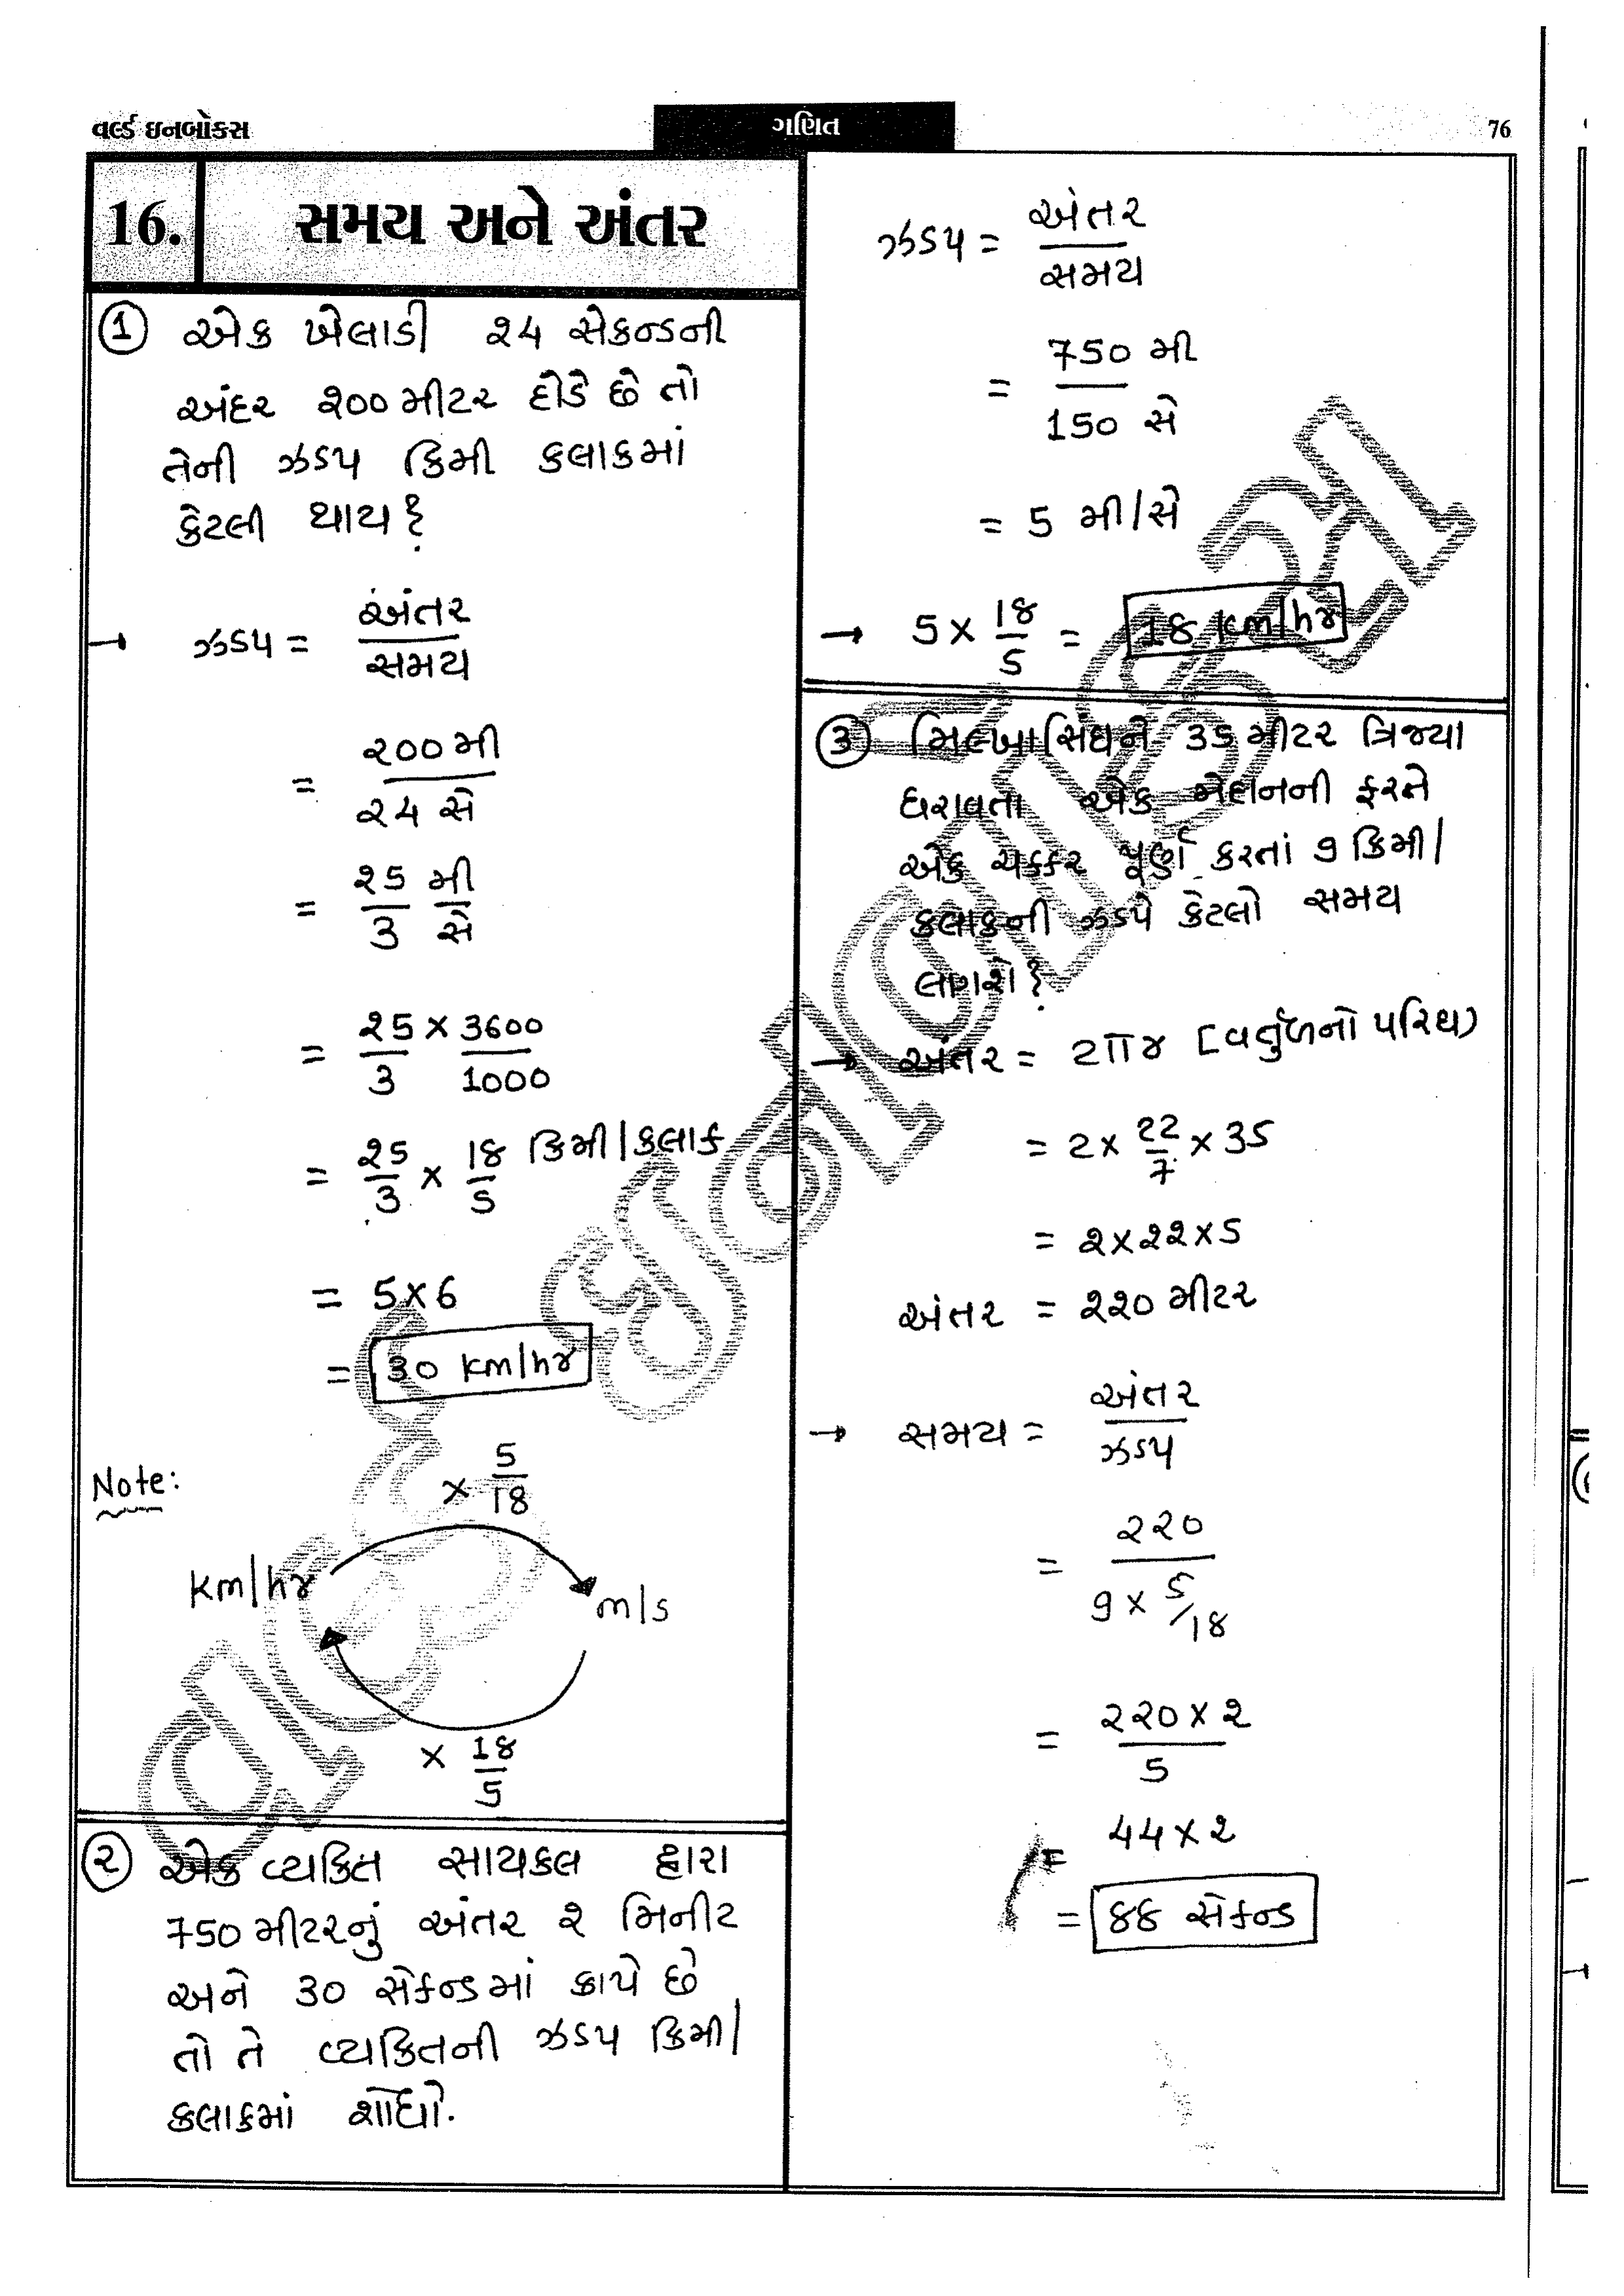 વર્લ્ડ ઇનબોક્સ
ગણિત
76
16.
સમય અને અંતર
① એક ખેલાડી ૨4 સેકન્ડની
અંદર ૨00 મીટર દોડે છે તો
તેની ઝડપ કિમી કલાકમાં
કેટલી થાય?
→ ઝડપ = અંતર / સમય
= ૨00 મી / ૨4 સે
= ૨5 / 3 મી / સે
= ૨5 / 3 × 3600 / 1000
= ૨5 / 3 × 18 / 5 કિમી/કલાક
= 5 × 6
= 30 km/hr
Note:
× 5 / 18
km/hr
m/s
× 18 / 5
② એક વ્યકિત સાયકલ દ્વારા
750 મીટરનું અંતર ૨ મિનીટ
અને 30 સેકન્ડમાં કાપે છે
તો તે વ્યકિતની ઝડપ કિમી/
કલાકમાં શોધો.
ઝડપ = અંતર / સમય
= 750 મી / 150 સે
= 5 મી/સે
→ 5 × 18 / 5 = 18 km/hr
③ મિલ્ખાસિંઘને 35 મીટર ત્રિજ્યા
ધરાવતા એક મેદાનની ફરતે
એક ચક્કર પૂર્ણ કરતાં 9 કિમી/
કલાકની ઝડપે કેટલો સમય
લાગશે?
→ અંતર = 2πr [વર્તુળનો પરિઘ)
= 2 × 22 / 7 × 35
= ૨ × ૨૨ × 5
અંતર = ૨૨0 મીટર
→ સમય = અંતર / ઝડપ
= ૨૨0 / 9 × 5/18
= ૨૨0 × ૨ / 5
= 44 × ૨
= 88 સેકન્ડ